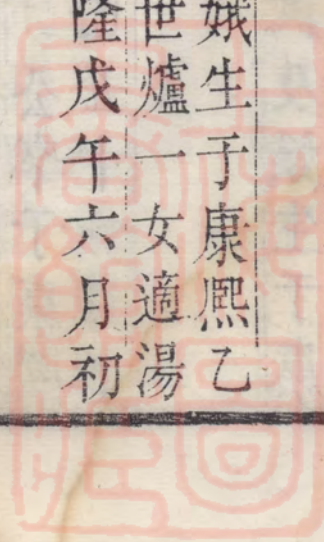 娥生于康熈乙
世爐一女適湯
隆戊午六月初